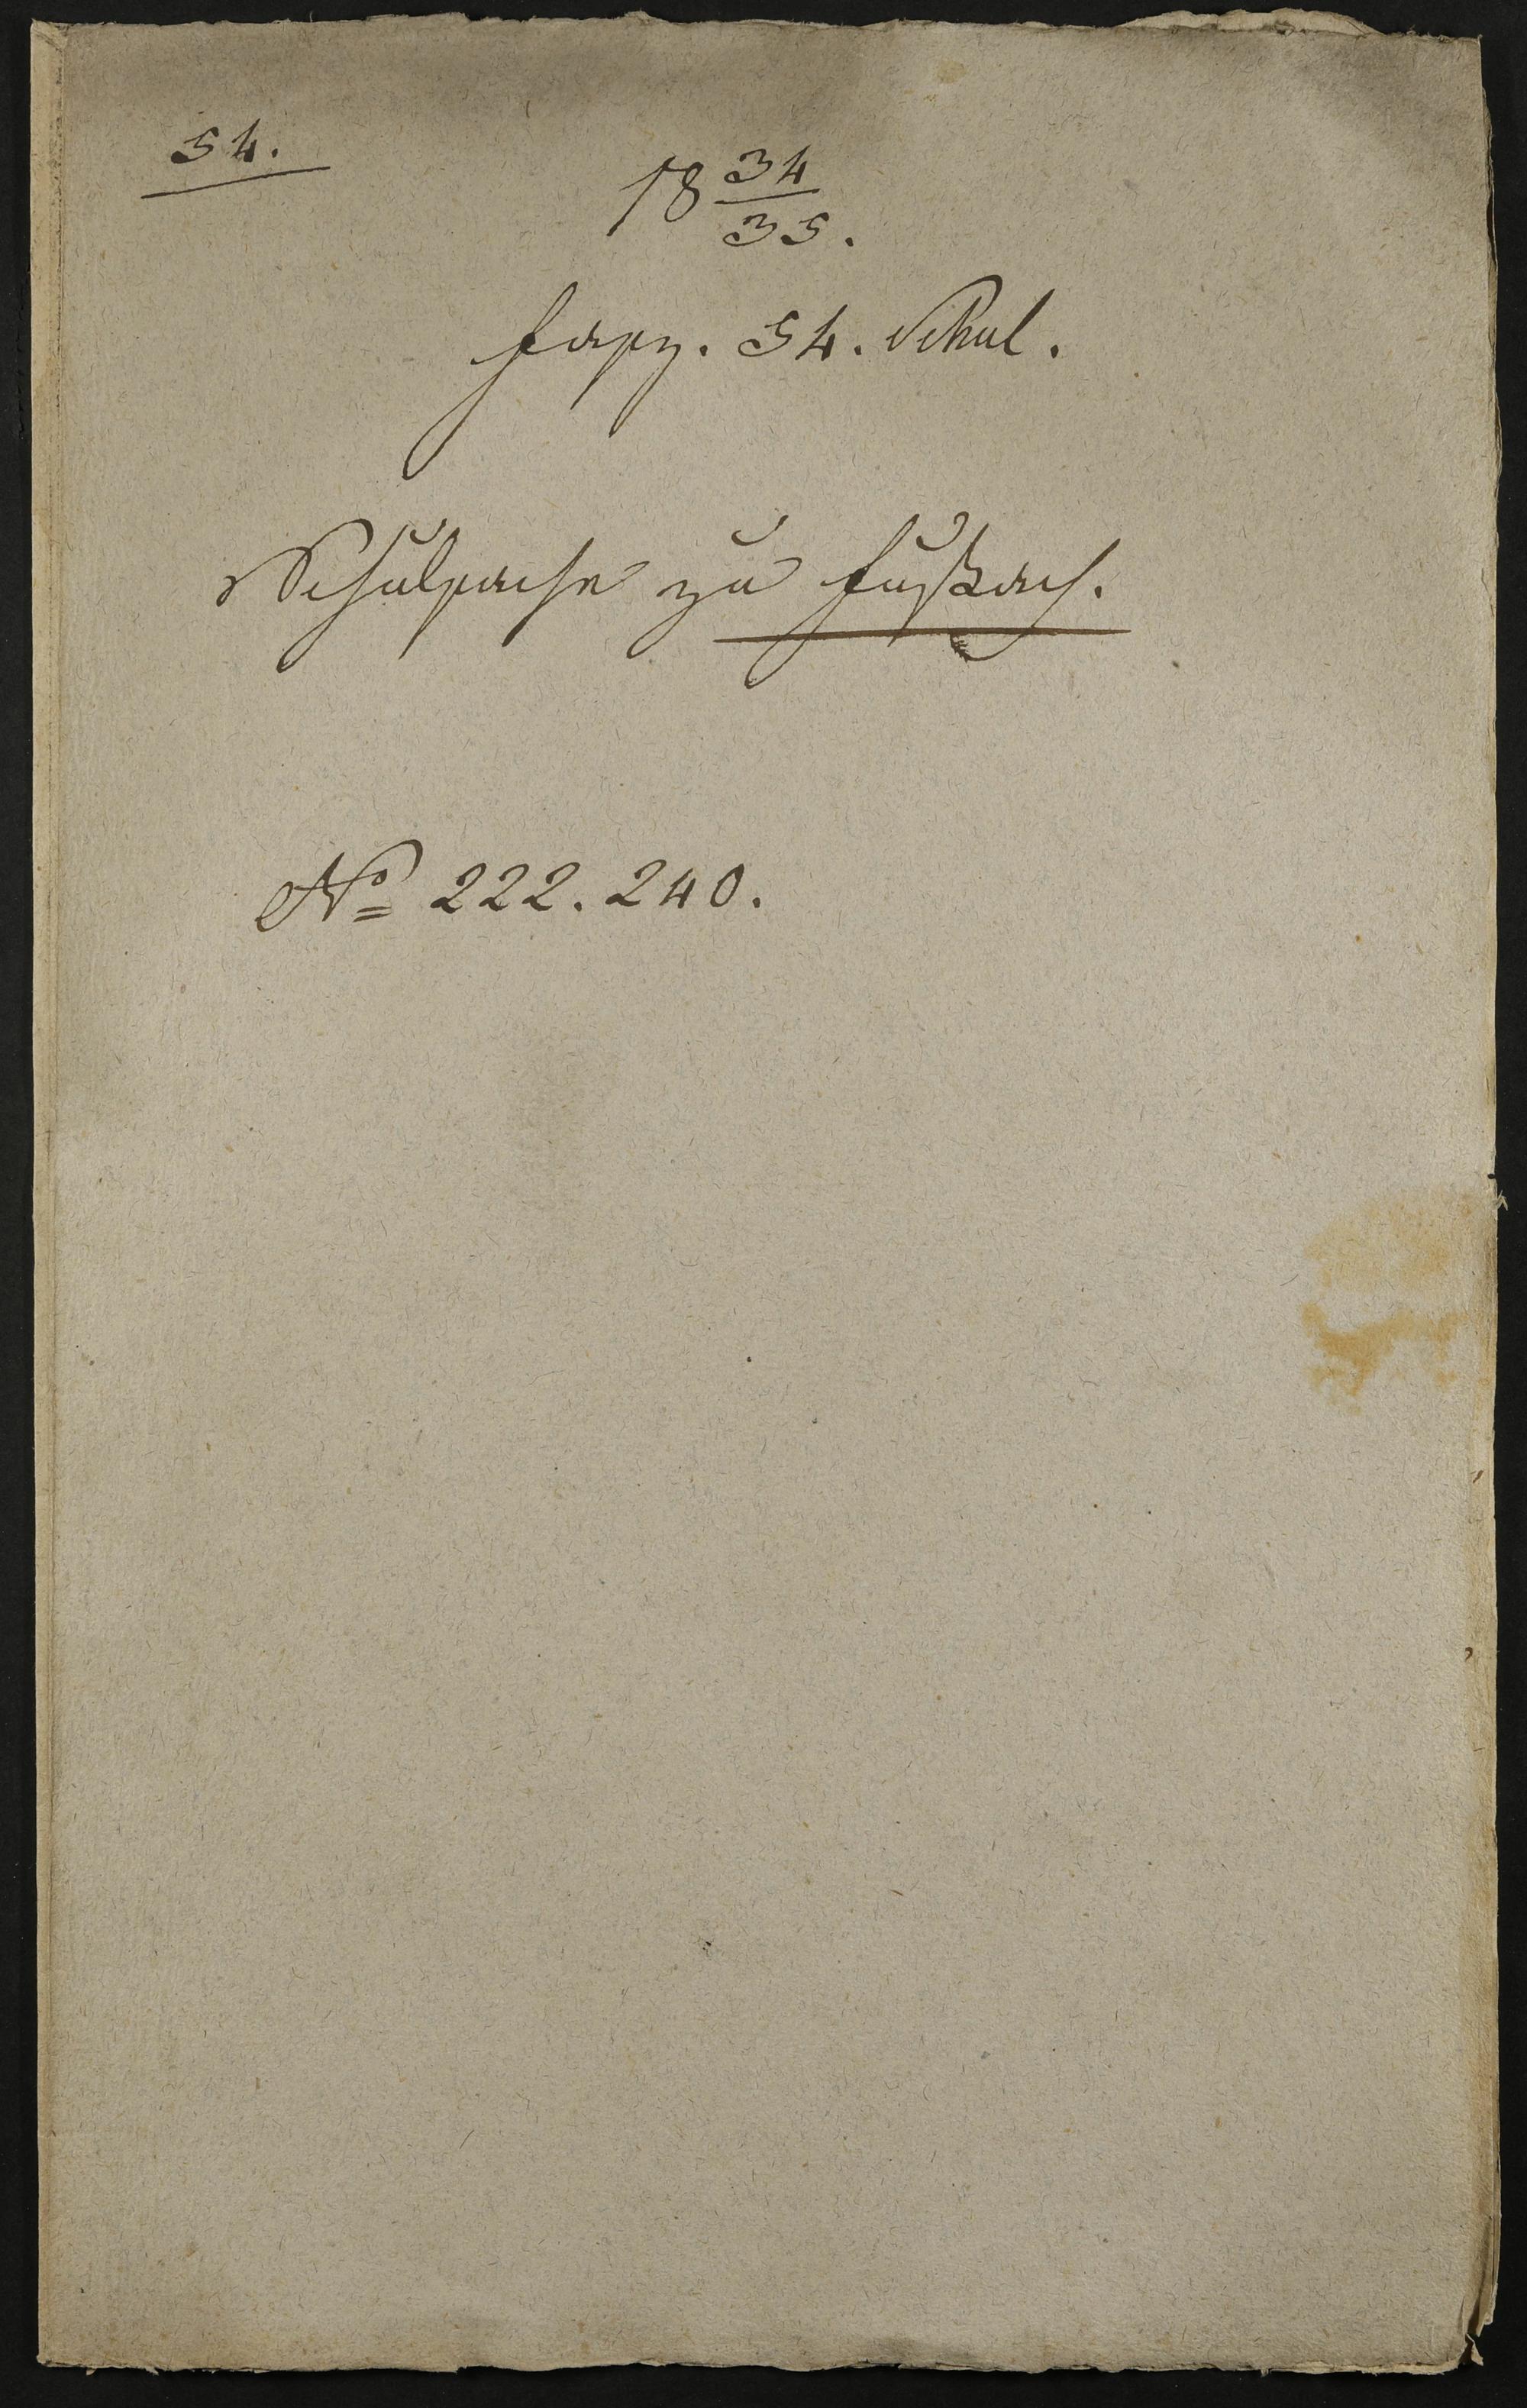 54.
18 34/35.
Fasz. 54. Schul.
Schulsache zu Fußach.
No 222. 240.